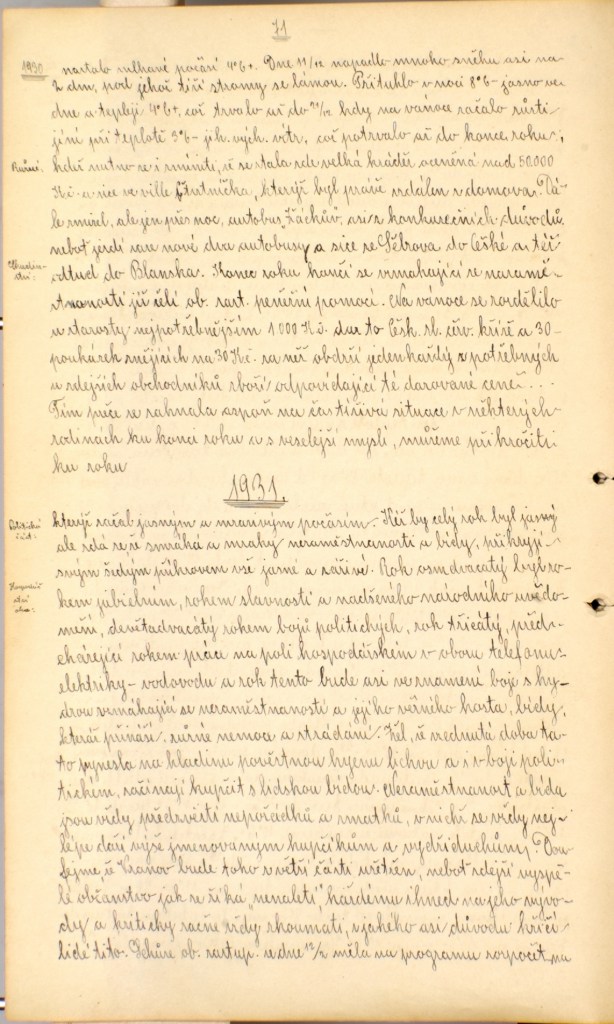 71
1930
nastalo mlhavé počasí 4°C+. Dne 11/12 napadlo mnoho sněhu asi na
2 dm, pod jehož tíží stromy se lámou. Přituhlo v noci 8°C- jasno ve
dne a tepleji 4°C+, což trvalo až do kdy na vánoce začalo
při teplotě 3°C- jih. vých. větr, což potrvalo až do konce roku,
Různé.
nutno se i zmíniti, že se stala zde velká krádež oceněná nad 50.000
Kč a sice ve ville který byl právě vzdálen z domova. Dá-
le zmizel, ale jen přes noc, autobus „Žáčkův„ asi z konkurečních důvodů
neboť jezdí zde nové dva autobusy a sice ze Šebrova do České a též
odtud do Blanska. Konec roku končí se vzmáhající se nezaměst-
naností již čelí ob. zast. peněžní pomocí. Na vánoce se rozdělilo
u starosty nejpotřebnějším 1000 Kč. dar to Česk. sl. červ. kříže a 30-
poukázek znějících na 30 Kč. za něž obdrží jedenkaždý z potřebných
u zdejších obchodníků zboží odpovídající té darované ceně...
Tím přece se zahnala aspoň na čas tíživá situace v některých
rodinách ku konci roku a s veselejší myslí, můžeme přikročiti
ku roku
1931.
který začal jasným a mrazivým počasím. Kéž by celý rok byl jasný
ale zdá se, že smráká a mraky nezaměstnanosti a bídy, přikryjí
svým šedým příkrovem vše jasné a zářivé. Rok osmadvacátý byl ro-
kem jubilelním, rokem slavností a nadšeného národního uvědo-
mění, devětadvacátý rokem bojů politických, rok třicátý, před-
cházející rokem práce na poli hospodářském v oboru telefonu-
elektriky- vodovodu a rok tento bude asi ve znamení boje s hy-
drou vzmáhající se nezaměstnanosti a jejího věrného hosta, bídy,
která přináší různé nemoce a strádání. Žel, že vzedmutá doba ta-
to vynesla na hladinu pověstnou hyenu lichvu a i v boji poli-
tickém, začínají kupčit s lidskou bídou. Nezaměstnanost a bída
jsou vždy předzvěstí nepořádků a zmatků, v nichž se vždy nej-
lépe daří výše jmenovaným kupčíkům a vydřiduchům. Dou-
fejme, že Vranov bude toho v větší části ušetřen, neboť zdejší vyspě-
lé občanstvo jak se říká „nenaletí„ každému ihned na jeho vývo-
dy a kriticky začne vždy zkoumati, z jakého asi důvodu křičí
lidé tito. Schůze ob. zastup. ze dne 12/2 měla na programu rozpočet na